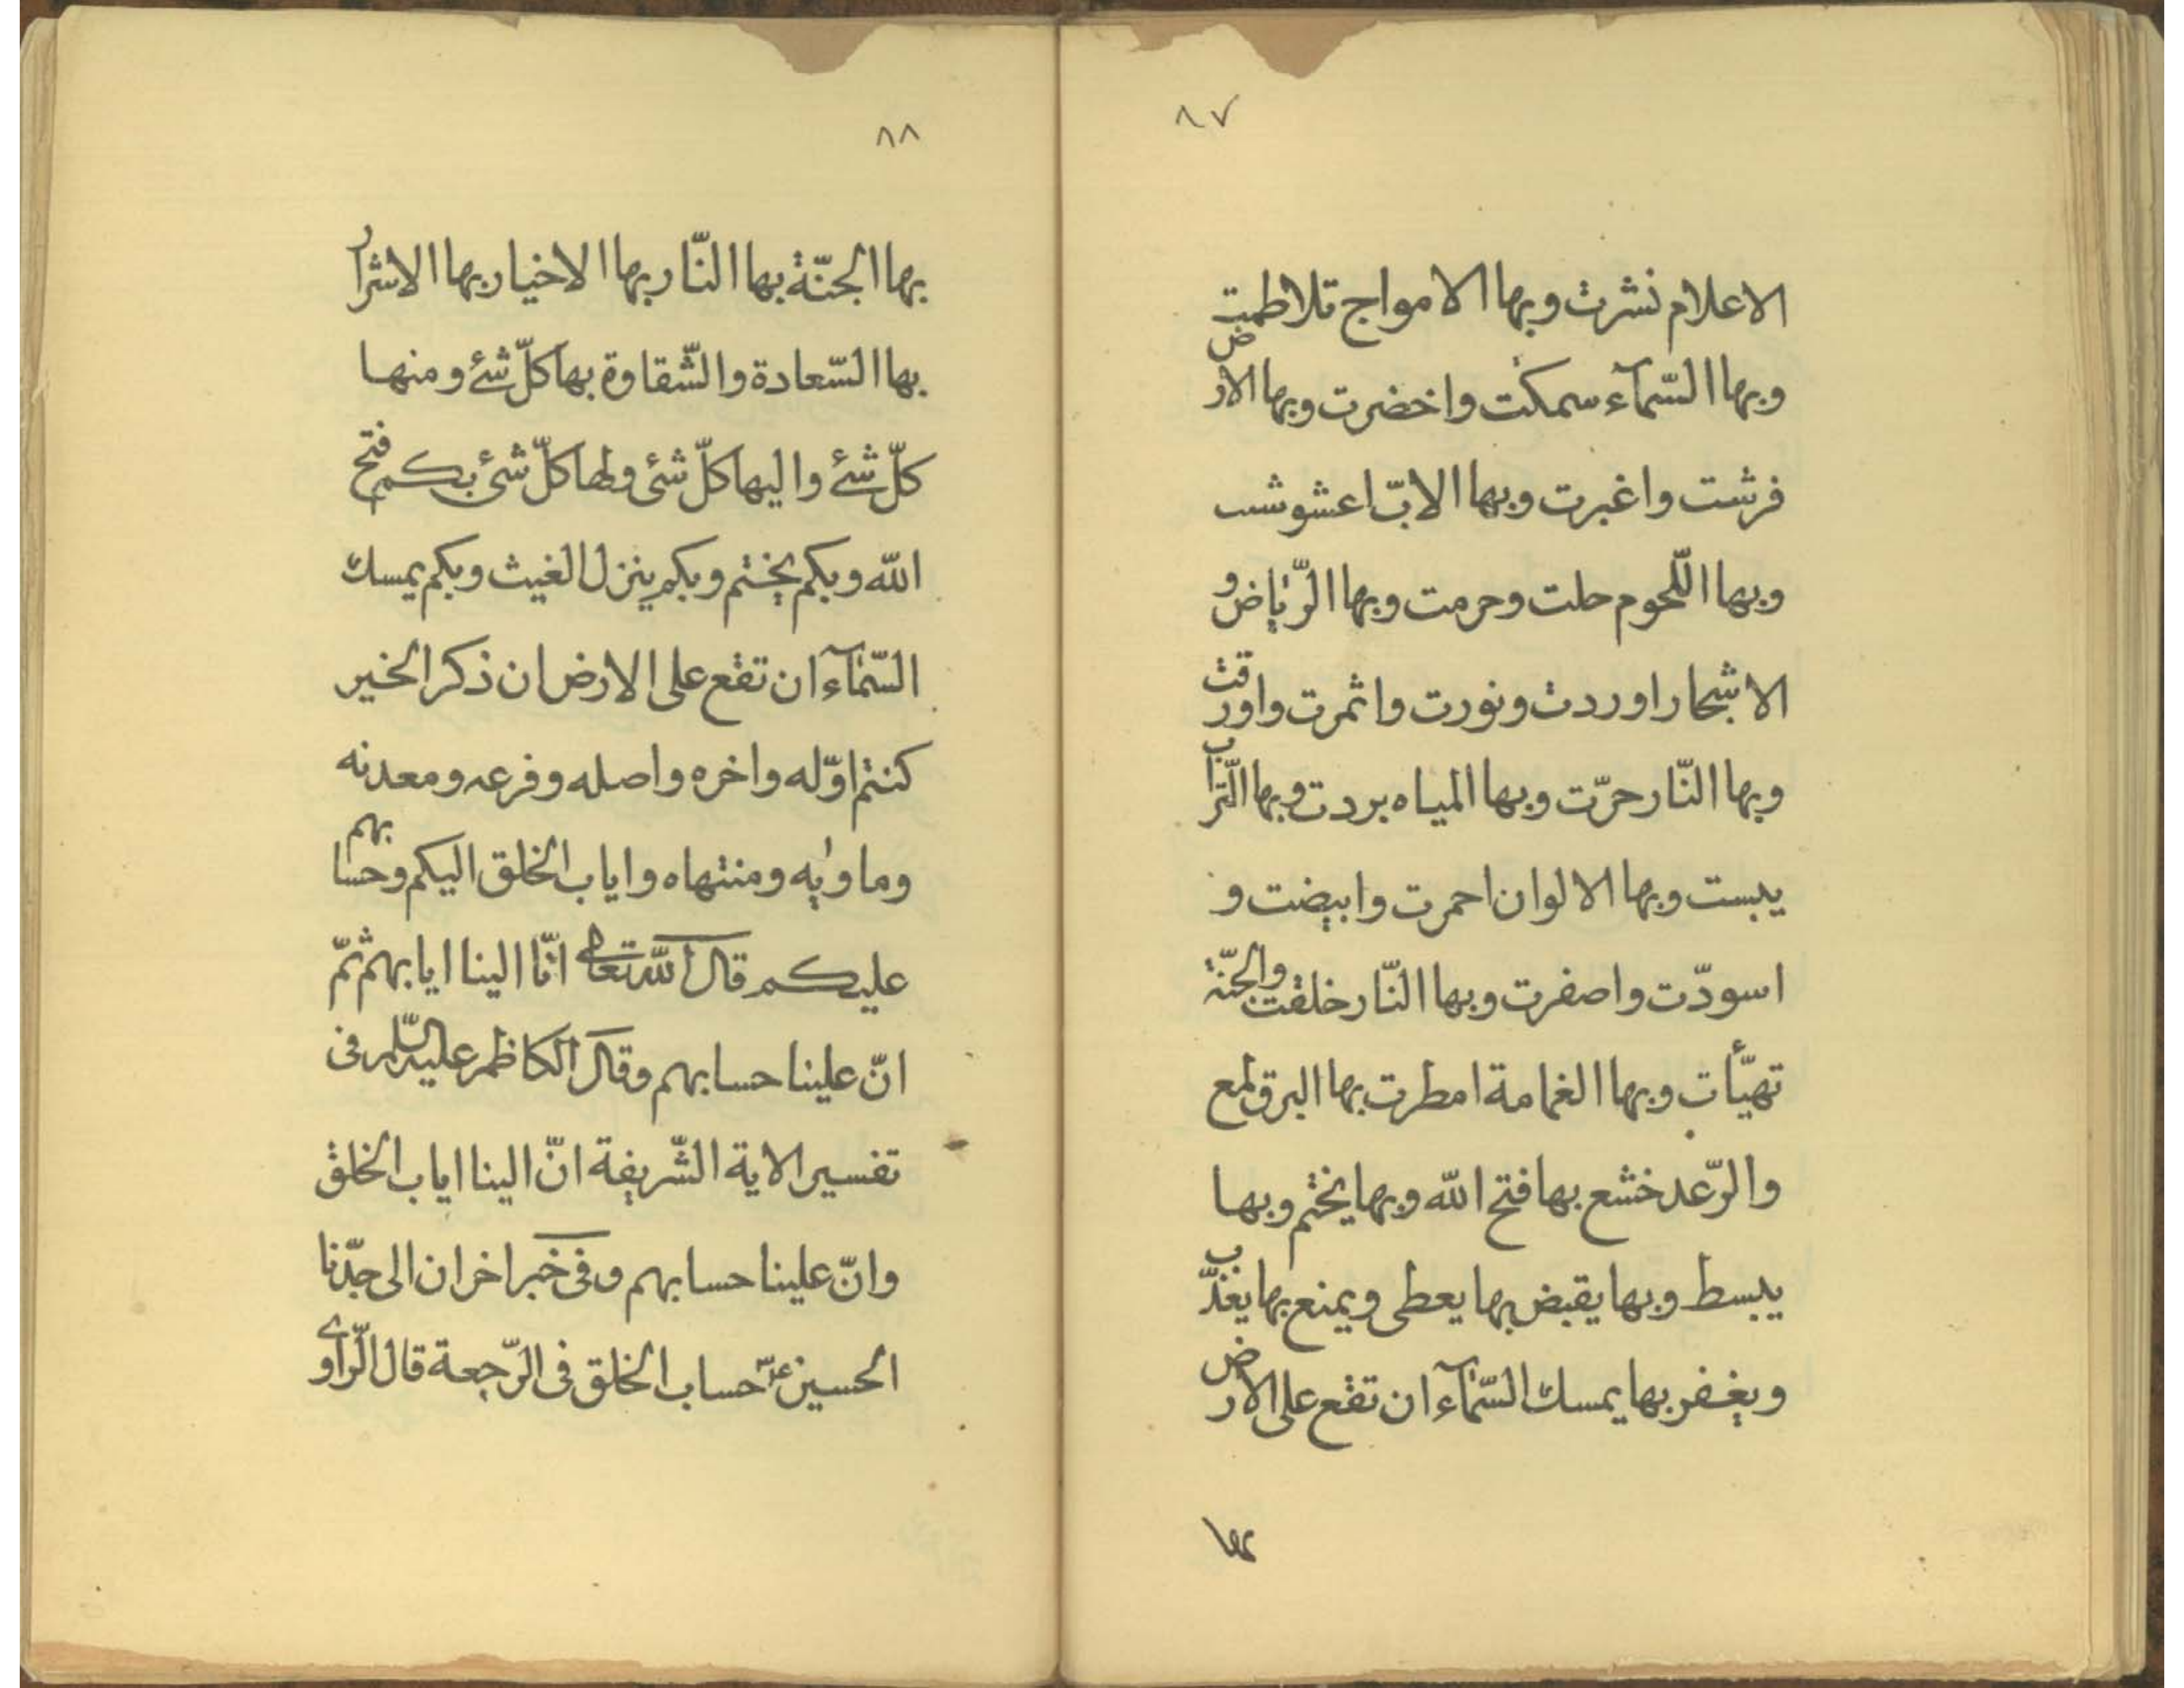 ٨٧
الاعلام نشرت وبها الامواج تلاطمت
وبها السّمآء سمكت واخضرت وبها الارض
فرشت واغبرت وبها الابّ اعشوشب
وبها اللّحوم حلت وحرمت وبها الرّياض و
الاشجار اوردت ونورت واثمرت واورقت
وبها النّار حرّت وبها المياه بردت وبها التّراب
يبست وبها الالوان احمرت وابيضت و
اسودّت واصفرت وبها النّار خلقت والجنّة
تهيّأت وبها الغمامة امطرت بها البرق لمع
والرّعد خشع بها فتح الله وبها يختم وبها
يبسط وبها يقبض بها يعطى ويمنع بها يعذّب
ويغفر بها يمسك السّمآء ان تقع على الارض
بها
٨٨
بها الجنّة بها النّار بها الاخيار بها الاشرار
بها السّعادة والشّقاوة بها كلّ شئ ومنها
كلّ شئ واليها كلّ شئ ولها كلّ شئ بكم فتح
الله وبكم يختم وبكم ينزل الغيث وبكم يمسك
السّمآء ان تقع على الارض ان ذكر الخير
كنتم اوّله واخره واصله وفرعه ومعدنه
وماويه ومنتهاه واياب الخلق اليكم وحسابهم
عليكم قال الله تعالى انّا الينا ايابهم ثمّ
انّ علينا حسابهم وقال الكاظم عليه السّلم فى
تفسير الاية الشّريفة انّ الينا اياب الخلق
وانّ علينا حسابهم وفى خبر اخر ان الى جدّنا
الحسين عـ حساب الخلق فى الرّجعة قال الرّاوى